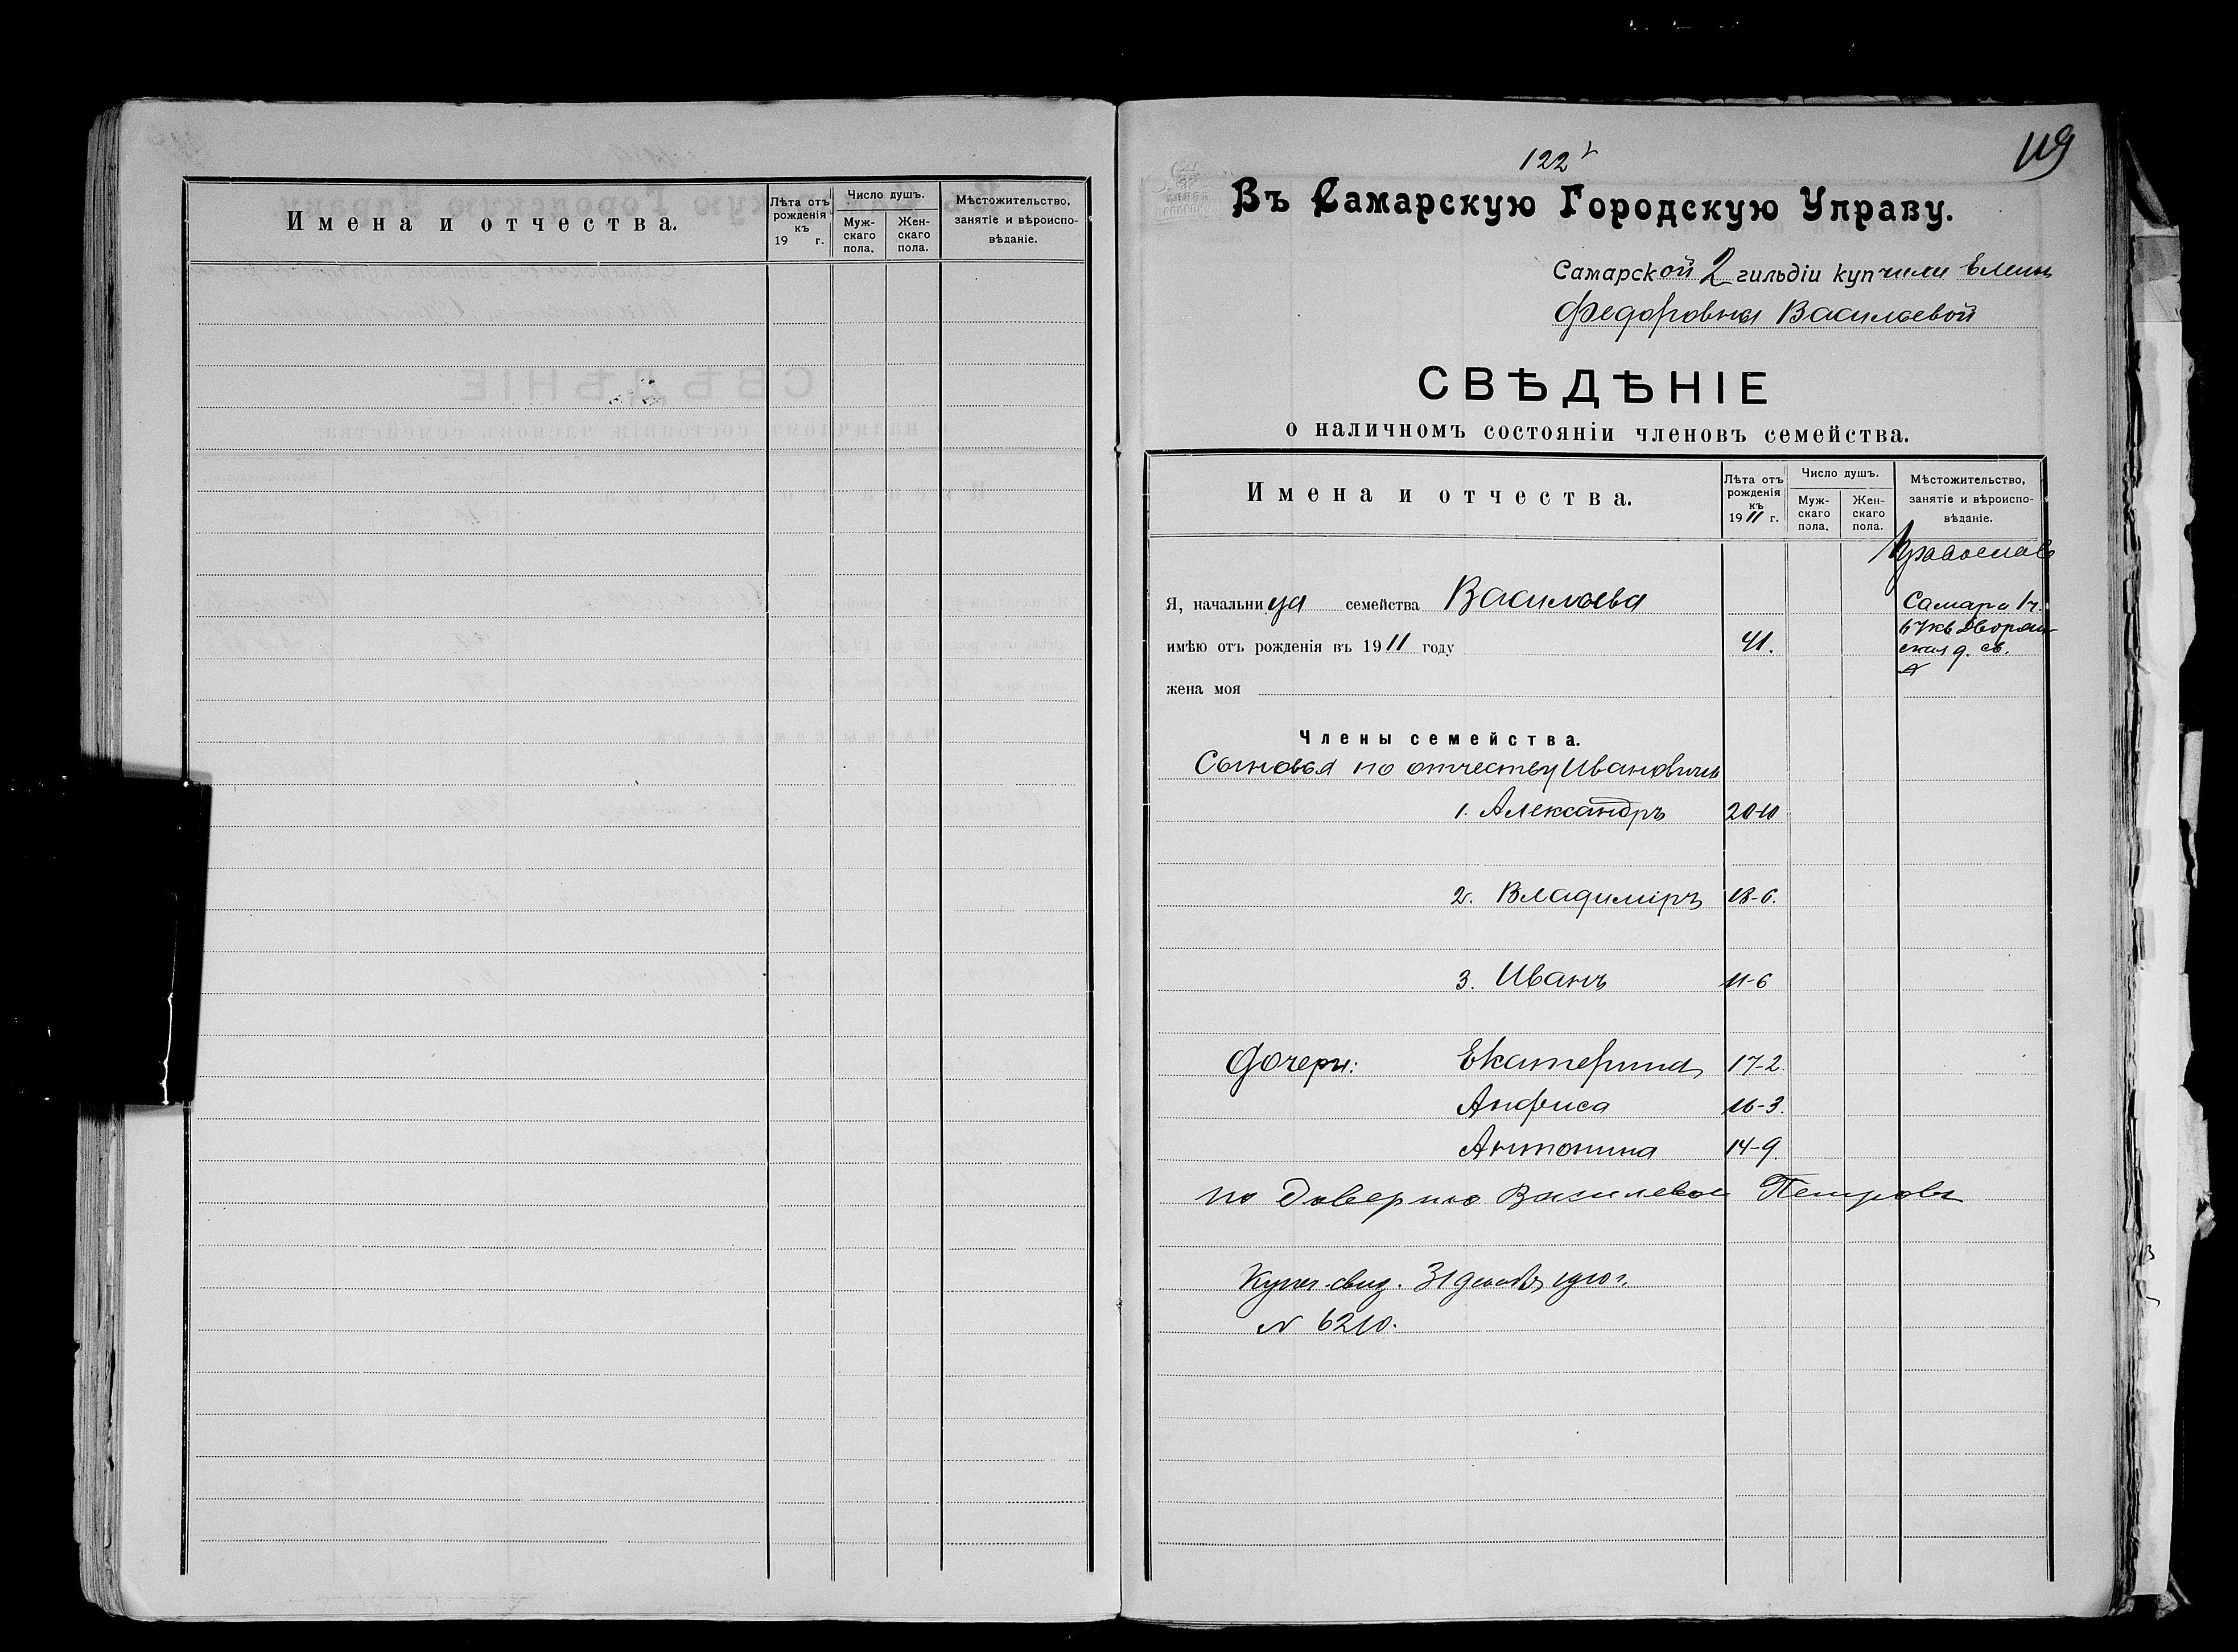 Имена и отчества.
Лѣта отъ рожденія къ 19 г.
Число душъ.
Мужскаго пола.
Женскаго пола.
Мѣстожительство, занятіе и вѣроисповѣданіе.
119
122
Въ Самарскую Городскую Управу.
Самарской 2 гильдіи купчихи Елены
Федоровны Васильевой
СВѢДѢНІЕ
о наличномъ состояніи членовъ семейства.
Имена и отчества.
Лѣта отъ рожденія къ 1911 г.
Число душъ.
Мужскаго пола.
Женскаго пола.
Мѣстожительство, занятіе и вѣроисповѣданіе.
Православ
Я, начальница семейства Васильева
Самара 1ч.
имѣю отъ рожденія въ 1911 году 41.
67 кв Дворян-
ская д. св.
жена моя
Члены семейства.
Сыновья по отчеству Ивановичи
1. Александръ 20-10
2. Владиміръ 18-6.
3. Иванъ 11-6
Дочери: Екатерина 17-2.
Анфиса 16-3.
Антонина 14-9.
по доверию Васильевой Петровъ
Купеч. свид. 31 декабр 1910 г.
N 6210.